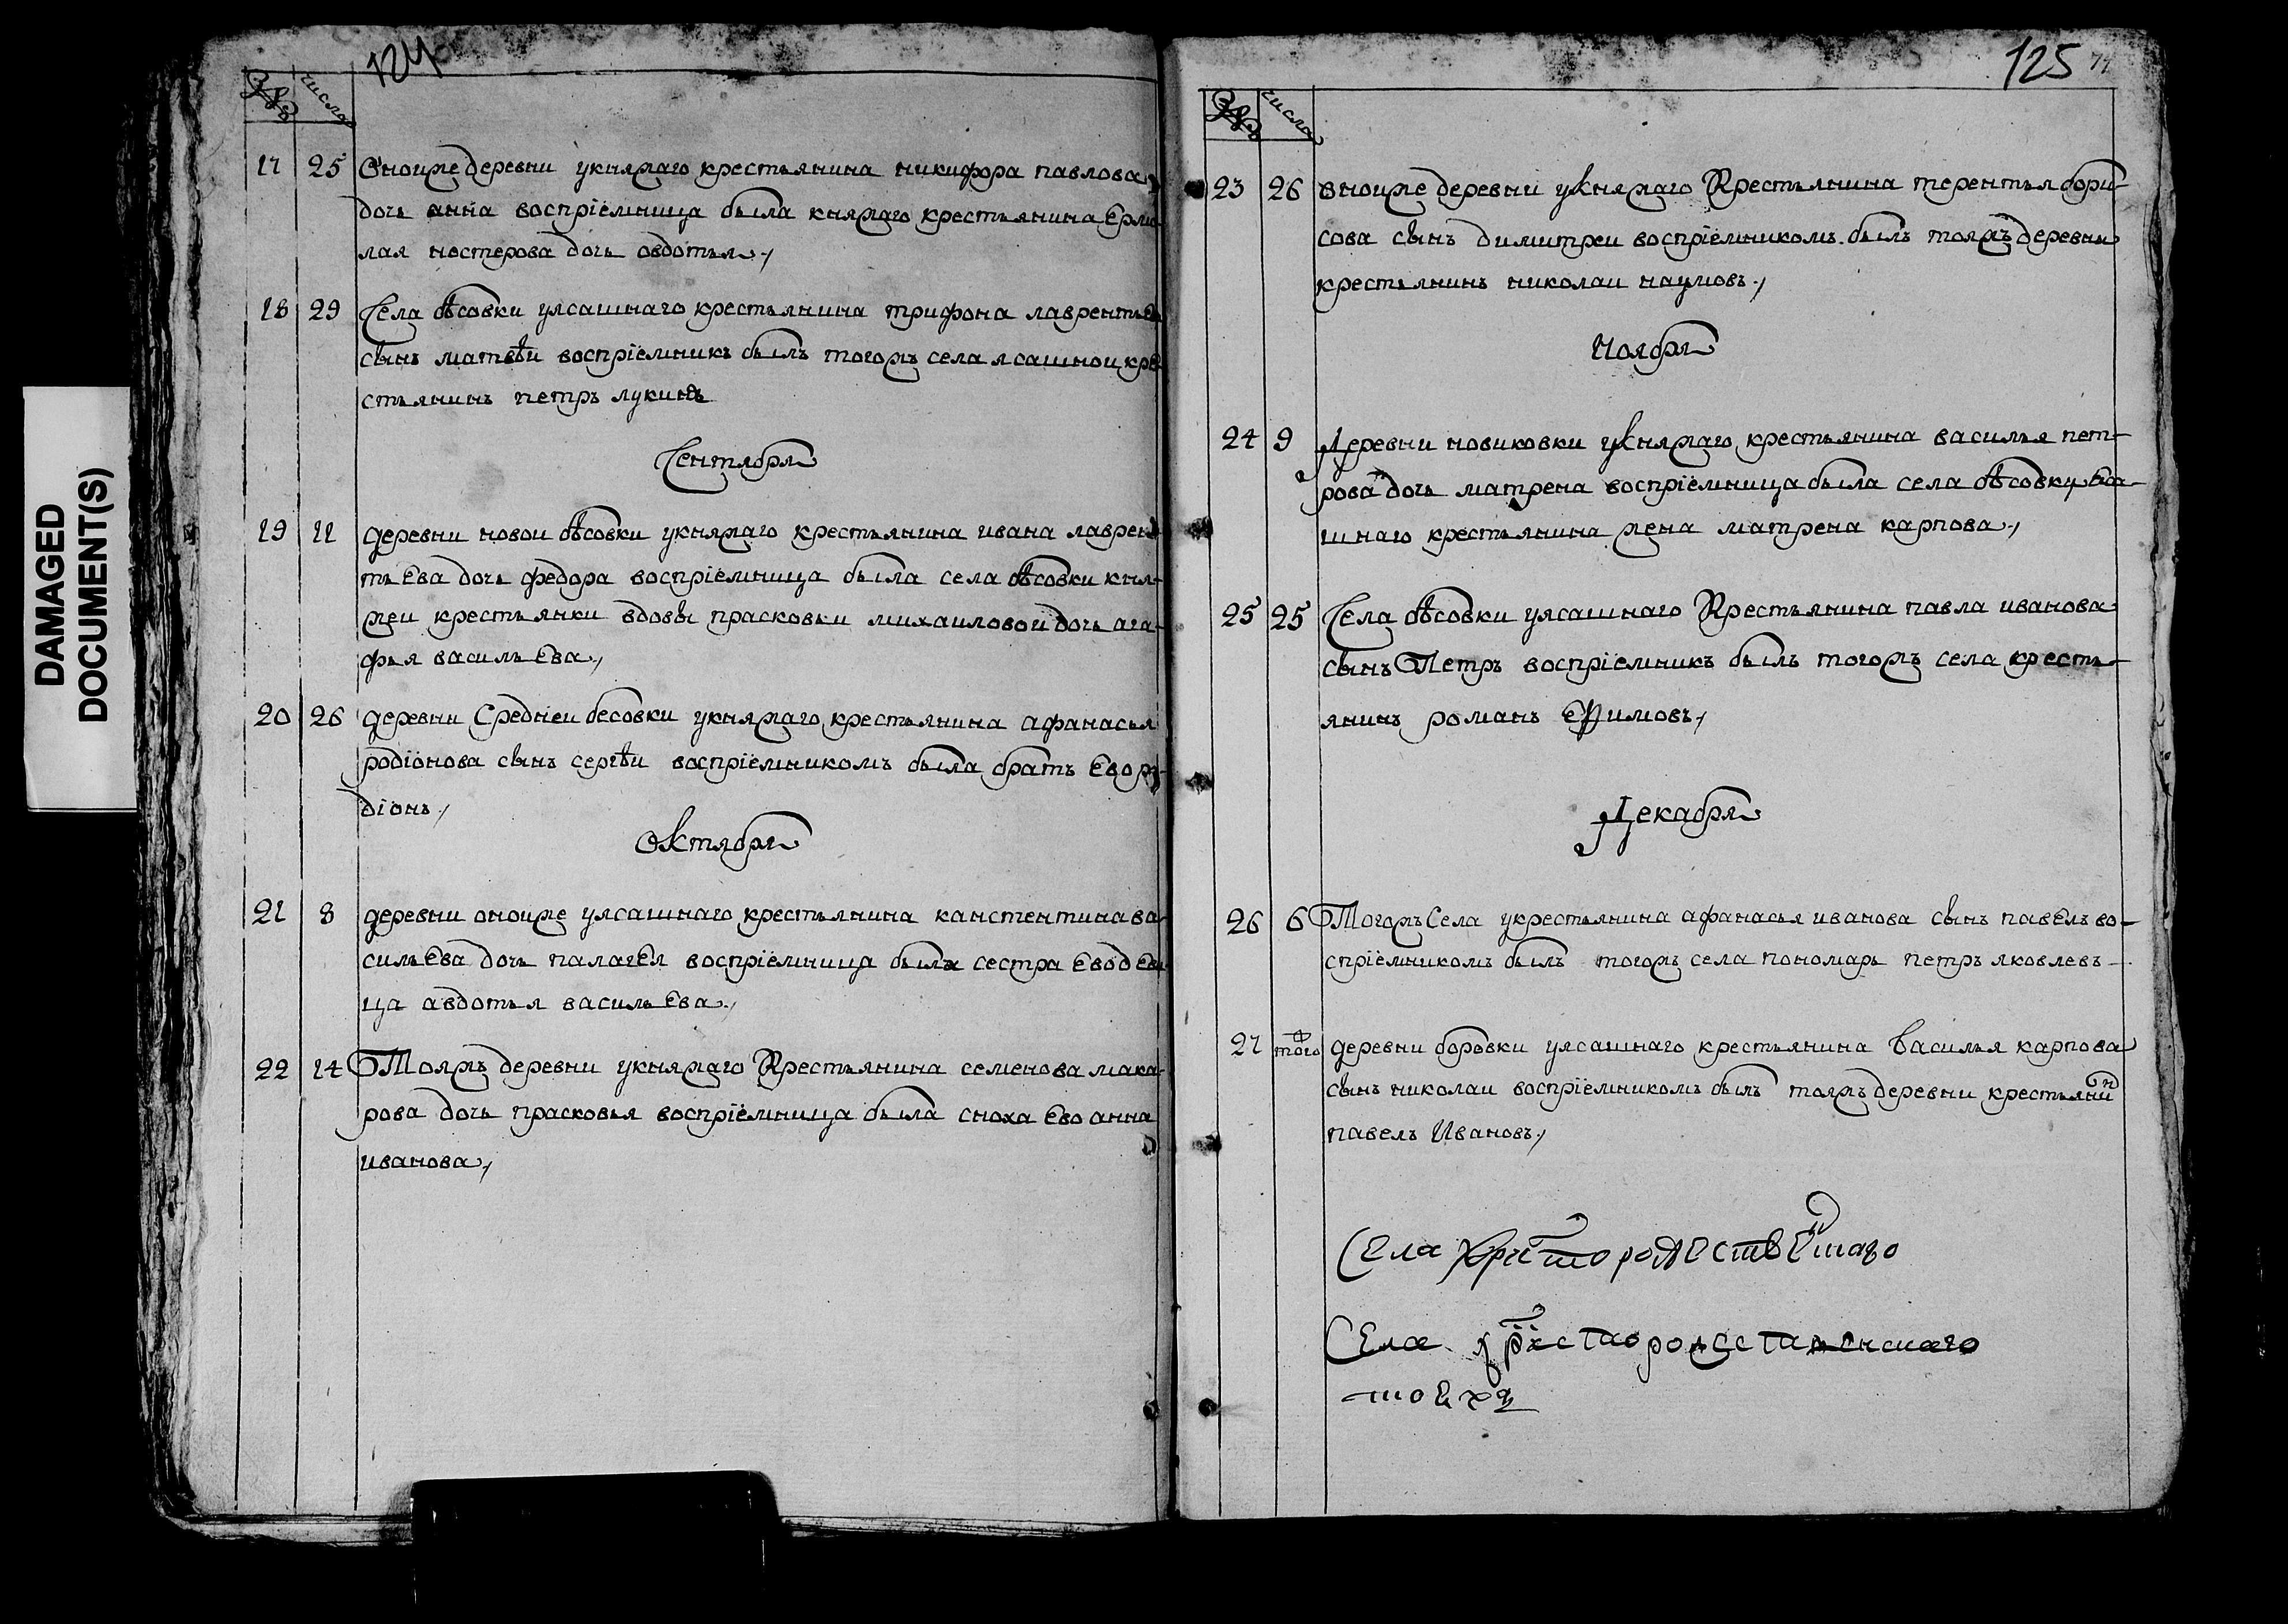 DAMAGED
DOCUMENT(S)
124
числа
17 25 Оноиже деревни укняжаго крестьянина никифора павлова
дочь анна воспрїемница была княжаго крестьянина Ермо-
лая нестерова дочь овдотья
18 29 Села бѣсовки уясашнаго крестьянина трифона лаврентьева
сынъ матвѣи воспрїемникъ былъ тогожъ села ясашнои кре-
стьянинъ петръ лукинъ
Сентября
19 11 деревни новои бѣсовки укняжаго крестьянина ивана лаврен-
тьЕва дочь федора воспрїемница была села бѣсовки кня-
жеи крестьянки вдовы прасковьи михаиловои дочь ага-
фья васильЕва
20 26 деревни Среднеи бесовки укняжаго крестьянина афанасья
родїонова сынъ сергѣи воспрїемникомъ была братъ Ево ро-
дїонъ
Октября
21 8 деревни оноиже уясашнаго крестьянина канстентина ва-
сильЕва дочь палагЕя воспрїемница была сестра Ево дЕви-
ца авдотья васильЕва
22 14 Тояжъ деревни укняжаго Крестьянина семенова мака-
рова дочь прасковья воспрїемница была сноха Ево анна
иванова
125
числа
23 26 оноиже деревни укняжаго Крестьянина терентья бори-
сова сынъ димитреи воспрїемникомъ былъ тояжъ деревни
крестьянинъ николаи наумовъ
Ноября
24 9 Деревни новиковки укняжаго крестьянина василья пет-
рова дочь матрена воспрїемница была села бѣсовки Яса-
шнаго крестьянина жена матрена карпова
25 25 Села бѣсовки уясашнаго Крестьянина павла иванова
сынъ Петръ воспрїемникъ былъ тогожъ села кресть-
янинъ романъ Ефимовъ
Декабря
26 6 Тогожъ Села укрестьянина афанасья иванова сынъ павЕлъ во-
спрїемникомъ былъ тогожъ села пономарь петръ яковлевъ
27 того деревни боровки уясашнаго крестьянина Василья карпова
сынъ николаи воспрїемникомъ былъ тояжъ деревни крестьянин
павелъ Ивановъ
Села
Села